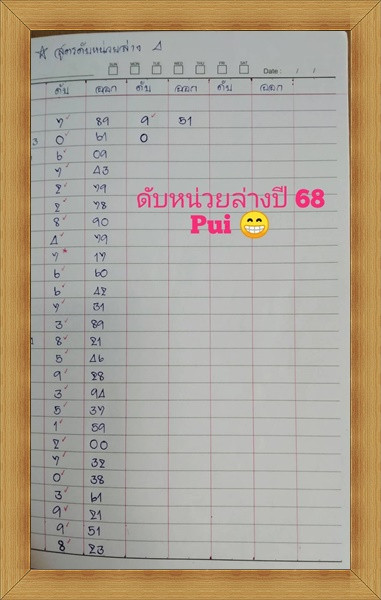 ☆ สูตรดับหน่วยล่าง 4
SUN MON TUE WED THU FRI SAT
Date : / /
ดับ ออก ดับ ออก ดับ ออก
7 89 9 51
0 61 0
6 09
7 43
2 79
2 78
ดับหน่วยล่างปี 68
8 90
Pui 😁
4 79
7* 17
6 60
6 42
7 31
3 89
8 21
5 46
9 28
3 94
5 37
1 59
2 00
7 32
0 38
3 61
9 21
9 51
8 23